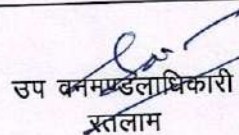 उप वनमण्डलाधिकारी
रतलाम